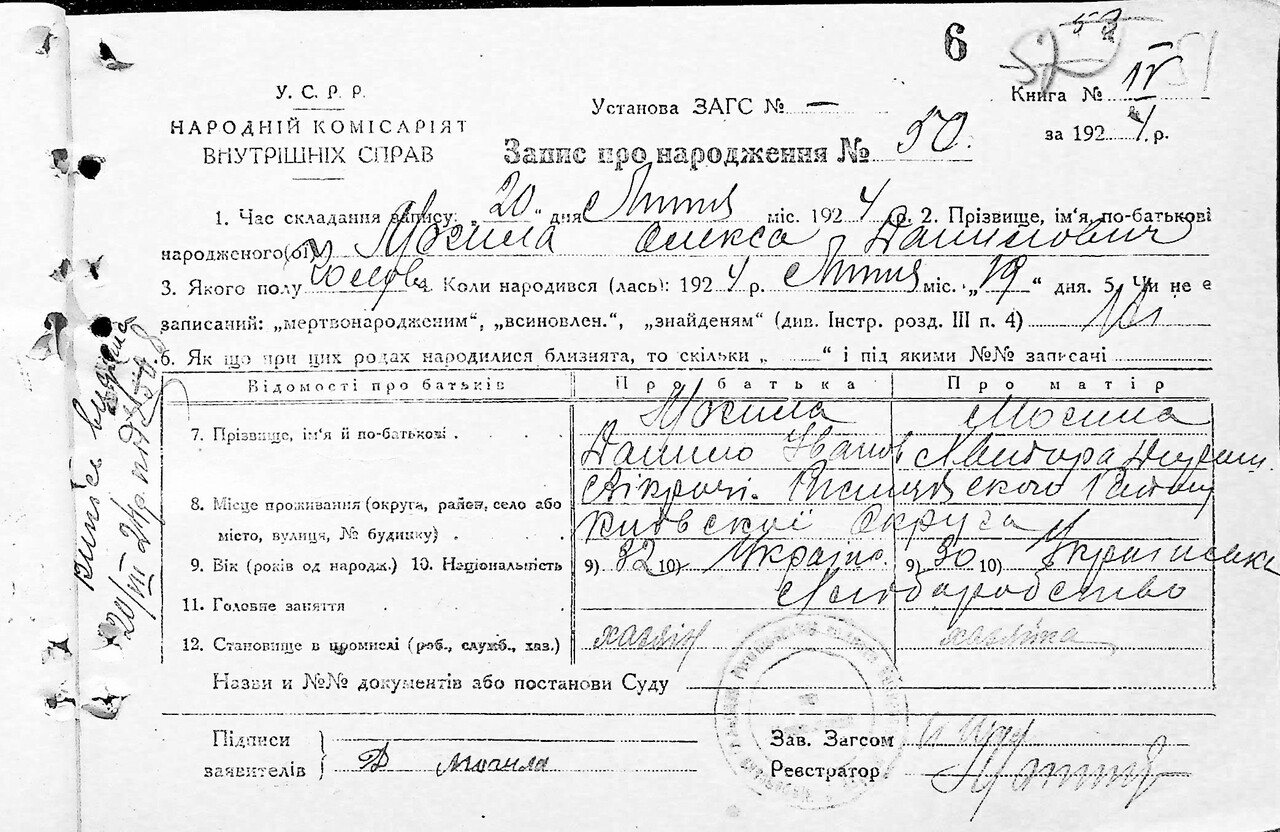 6
58
52
51
У. С. Р. Р.
НАРОДНІЙ КОМІСАРІЯТ
ВНУТРІШНІХ СПРАВ
Установа ЗАГС № —
Книга № IV
за 1924 р.
Запис про народження № 50.
1. Час складання запису: „20“ дня Липня міс. 1924 р. 2. Прізвище, ім'я, по-батькові
народженого(ої) Могила Олекса Данилович
3. Якого полу Чолов. 4. Коли народився (лась): 1924 р. Липня міс. „19“ дня. 5. Чи не є
записаний: „мертвонародженим“, „всиновлен.“, „знайденям“ (див. Інстр. розд. III п. 4) Ні
6. Як що при цих родах народилися близнята, то скільки „ “ і під якими №№ записачі
Відомості про батьків Про батька Про матір
7. Прізвище, ім'я й по-батькові Могила Могила
Данило Іванов
8. Місце проживання (округа, район, село або
місто, вулиця, № будинку)
Київської Округа
9. Вік (років од народж.) 10. Національність 9) 32 10) Україн. 9) 30 10) Українська
11. Головне заняття Хлібаробство
12. Становище в промислі (роб., служб., хаз.) хазяін хазяйка
Назви и №№ документів або постанови Суду
Підписи
заявителів
Д Могила
Зав. Загсом
Реєстратор